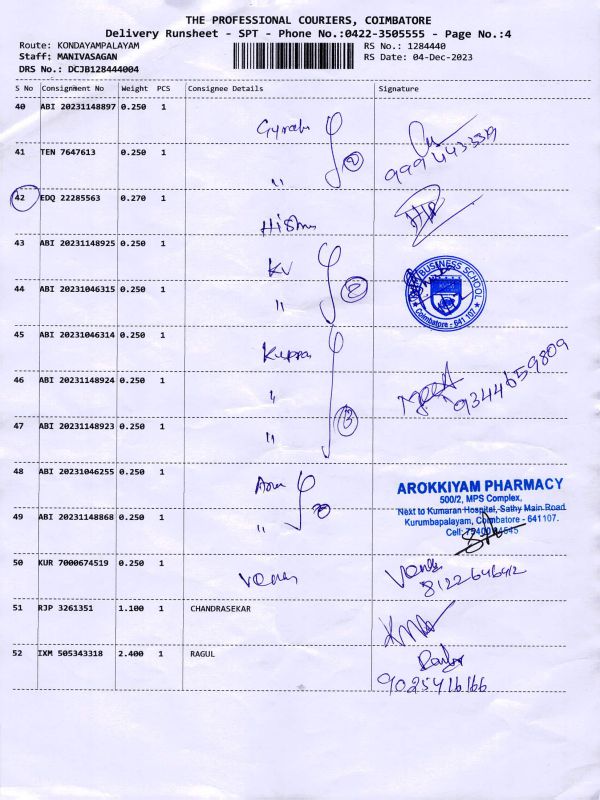 THE PROFESSIONAL COURIERS, COIMBATORE
Delivery Runsheet - SPT - Phone No.:0422-3505555 - Page No.:4
Route: KONDAYAMPALAYAM RS No.: 1284440
Staff: MANIVASAGAN RS Date: 04-Dec-2023
DRS No.: DCJB128444004
S No Consignment No Weight PCS Consignee Details Signature
40 ABI 20231148897 0.250 1
41 TEN 7647613 0.250 1
"
42 EDQ 22285563 0.270 1
43 ABI 20231148925 0.250 1
KV
44 ABI 20231046315 0.250 1
" 2
BUSINESS SCHOOL
Coimbatore - 641 107
45 ABI 20231046314 0.250 1
46 ABI 20231148924 0.250 1
"
9344659809
47 ABI 20231148923 0.250 1
" 3
48 ABI 20231046255 0.250 1
AROKKIYAM PHARMACY
500/2, MPS Complex,
Next to Kumaran Hospital, Sathy Main Road
Kurumbapalayam, Coimbatore - 641107.
49 ABI 20231148868 0.250 1
"
Cell:
50 KUR 7000674519 0.250 1
51 RJP 3261351 1.100 1 CHANDRASEKAR
52 IXM 505343318 2.400 1 RAGUL
9025416166